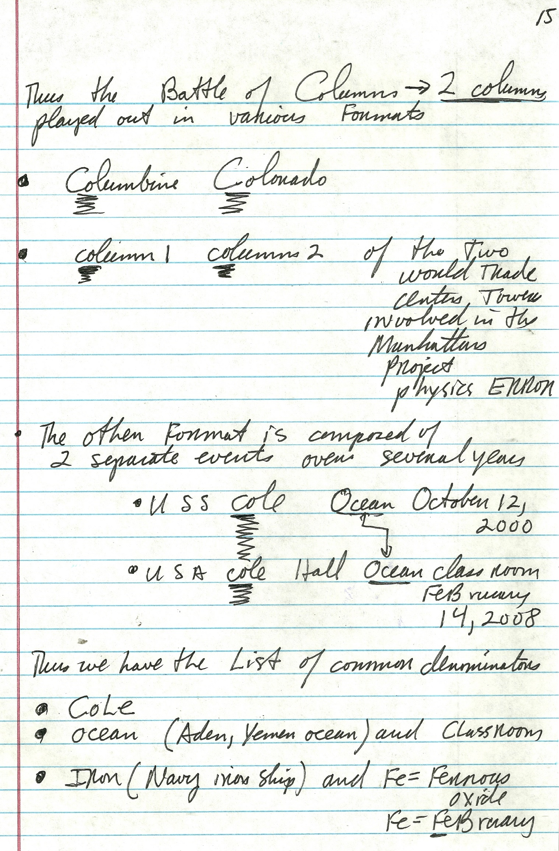 15
Thus the Battle of Columns → 2 columns
played out in various Formats
• Columbine Colorado
• column 1 columns 2 of the Two
would Trade
Centers, Towers
involved in the
Manhattan
Project
physics ERROR
• The other Format is composed of
2 separate events overs several years
• U S S cole Ocean October 12,
2000
• U S A cole Hall Ocean classroom
FeBruary
14, 2008
Thus we have the List of common denominators
• CoLe
• ocean (Aden, Yemen ocean) and Classroom
• Iron (Navy iron ship) and Fe = Ferrous
oxide
Fe = FeBruary